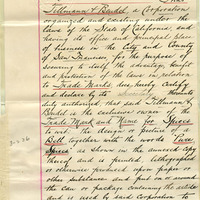 Tillmann & Bendel, a Corporation
organized and existing under the
laws of the State of California and
having its office and principal place
of business in the City and County
of San Francisco, for the purpose of
securing to itself the advantage, benefit
and protection of the laws in relation
to Trade Marks does, hereby Certify
and declare by
duly authorized, that said Tillmann &
Bendel is the exclusive owner of the
Trade Mark and Name for Spices
to wit: the design or picture of a
Bell together with the words "Pure
Spices" as shown in the annexed copy
thereof and is printed, lithographed
or otherwise produced upon paper or
other substance and put on or around
the can or package containing the article
and is used by said Corporation to